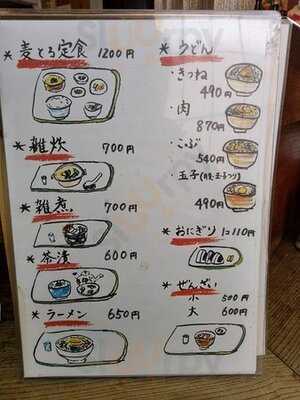 * 麦とろ定食 1200円
* 雑炊 700円
* 雑煮 700円
* 茶漬 600円
* ラーメン 650円
* うどん
・きつね
490円
・肉
870円
・こぶ
540円
・玉子(月見・玉子つづり)
490円
* おにぎり 1コ110円
* ぜんざい
小 500円
大 600円